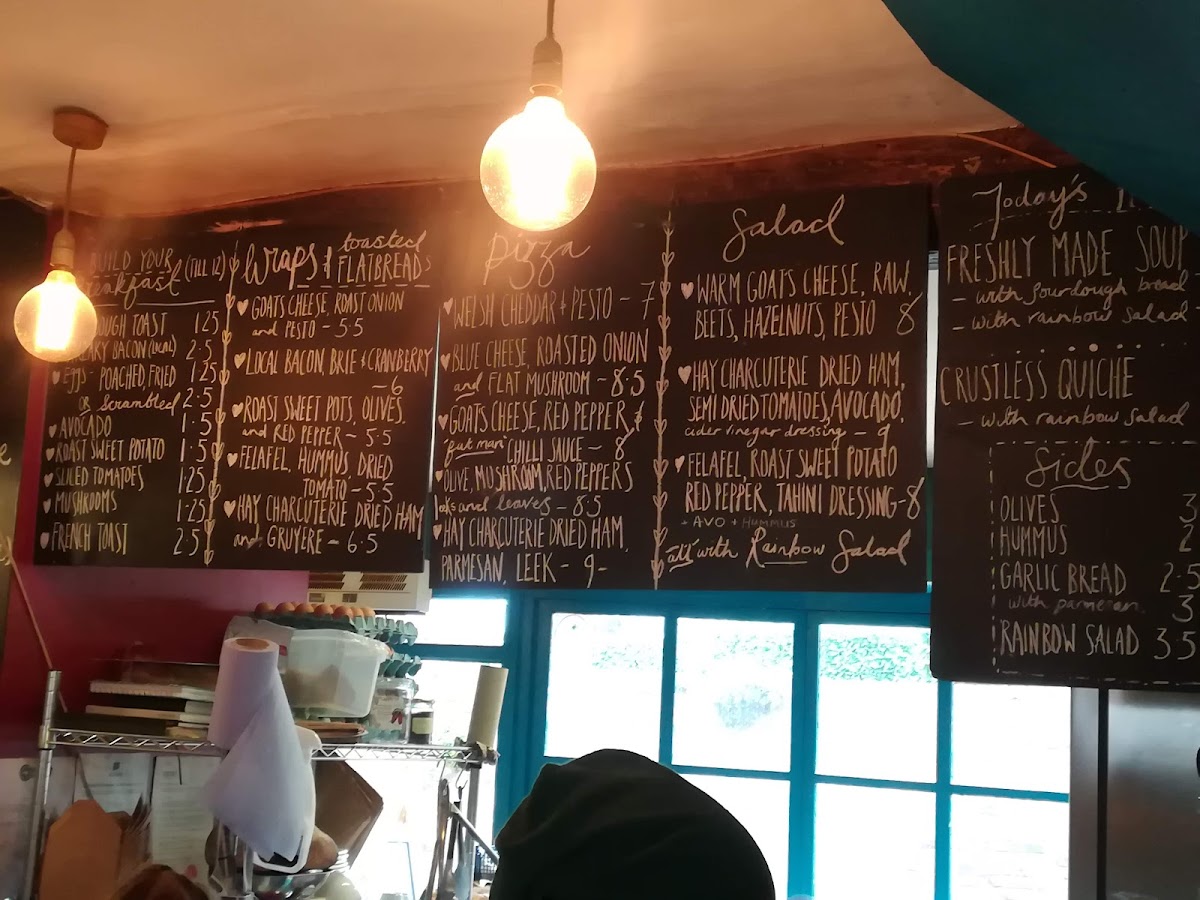 BUILD YOUR
Breakfast (TILL 12)
TOAST 1.25
BACON (LOCAL) 2.5
EGGS - POACHED, FRIED 1.25
OR Scrambled 2.5
AVOCADO 1.5
ROAST SWEET POTATO 1.5
SLICED TOMATOES 1.25
MUSHROOMS 1.25
FRENCH TOAST 2.5
Wraps & toasted
FLATBREADS
GOATS CHEESE, ROAST ONION
and PESTO - 5.5
LOCAL BACON, BRIE & CRANBERRY
- 6
ROAST SWEET POTS, OLIVES,
and RED PEPPER - 5.5
FELAFEL, HUMMUS, DRIED
TOMATO - 5.5
HAY CHARCUTERIE DRIED HAM
and GRUYERE - 6.5
Pizza
WELSH CHEDDAR + PESTO - 7
BLUE CHEESE, ROASTED ONION
and FLAT MUSHROOM - 8.5
GOATS CHEESE, RED PEPPER, &
CHILLI SAUCE - 8
OLIVE, MUSHROOM, RED PEPPERS
and leaves - 8.5
HAY CHARCUTERIE DRIED HAM,
PARMESAN, LEEK - 9 -
Salad
WARM GOATS CHEESE, RAW,
BEETS, HAZELNUTS, PESTO 8
HAY CHARCUTERIE DRIED HAM,
SEMI DRIED TOMATOES, AVOCADO,
cider vinegar dressing - 9
FELAFEL, ROAST SWEET POTATO
RED PEPPER, TAHINI DRESSING - 8
+ AVO + HUMMUS
all with Rainbow Salad
Today's
FRESHLY MADE SOUP
- with sourdough bread
- with rainbow salad
CRUSTLESS QUICHE
- with rainbow salad
Sides
OLIVES 3
HUMMUS 2
GARLIC BREAD 2.5
with parmesan 3
RAINBOW SALAD 3.5